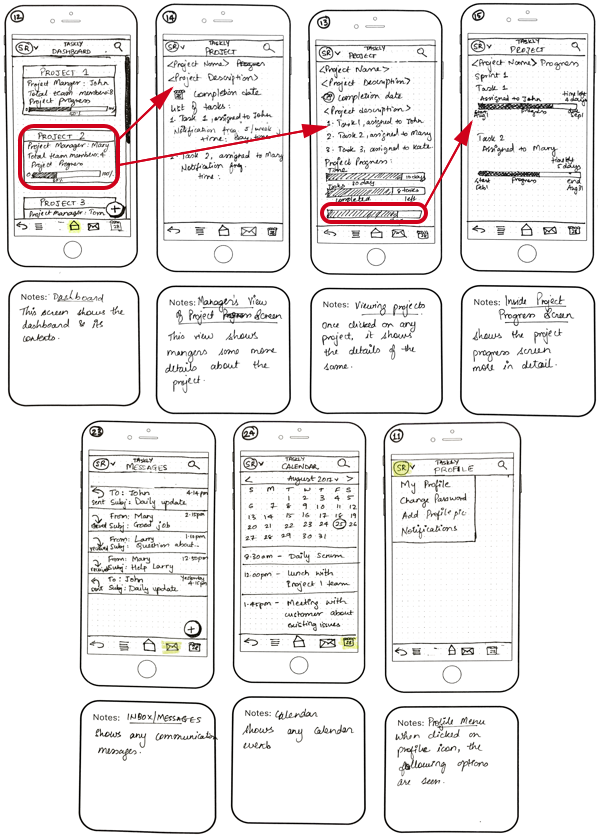 12
SR
TASKLY
DASHBOARD
PROJECT 1
Project Manager: John
Total team members: 8
Project progress
0
100%
PROJECT 2
Project Manager: Mary
Total team members: 4
Project Progress
0
100%
PROJECT 3
Project Manager: Tom
+
Notes: Dashboard
This screen shows the
dashboard & its
contexts.
14
SR
TASKLY
PROJECT
<Project Name> Progress
<Project Description>
Completion date
List of tasks:
1. Task 1, assigned to John
Notification freq: 5/week
time:
2. Task 2, assigned to Mary
Notification freq:
time:
Notes: Manager's View
of Project Progress Screen
This view shows
mangers some more
details about the
project.
13
SR
TASKLY
PROJECT
<Project Name>
<Project Description>
Completion date
<Project description>
1. Task 1, assigned to John
2. Task 2, assigned to Mary
3. Task 3, assigned to Kate
Project Progress:
Time
10 days
20 day
Tasks
8 tasks
completed left
Notes: Viewing projects
Once clicked on any
project, it shows
the details of the
same.
15
SR
TASKLY
PROJECT
<Project Name> Progress
Sprint 1
Task 1
Assigned to John
time left
4 days
Aug 1
progress
end
Sep 1
Task 2
Assigned to Mary
5 days
Start
progress
end
Aug 31
Notes: Inside Project
Progress Screen
Shows the project
progress screen
more in detail.
23
SR
TASKLY
MESSAGES
To: John 4:14pm
sent Subj: Daily update
From: Mary 2:15pm
Subj: Good job
From: Larry
Subj: Question about...
From: Mary 12:50pm
Subj: Help Larry
To: John Yesterday
4:15pm
Subj: Daily update
+
Notes: INBOX/MESSAGES
Shows any communication
messages.
24
SR
TASKLY
CALENDAR
< August 2017 >
S M T W T F S
1 2 3 4 5
6 7 8 9 10 11 12
13 14 15 16 17 18 19
20 21 22 23 24 25 26
27 28 29 30 31
8:30am - Daily Scrum
12:00pm - lunch with
Project 1 team
1:45pm - Meeting with
customer about
existing issues
Notes: Calendar
Shows any calendar
events
11
SR
TASKLY
PROFILE
My Profile
Change Password
Add Profile pic
Notifications
Notes: Profile Menu
When clicked on
profile icon, the
following options
are seen.